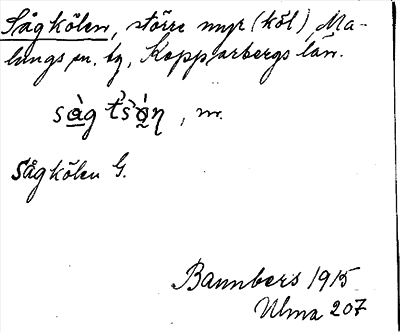 Sågkölen, större myr (köl), Ma-
lungs sn. og, Kopparbergs län.
, m.
Sågkölen G.
Bannbers 1915
Ulma 207